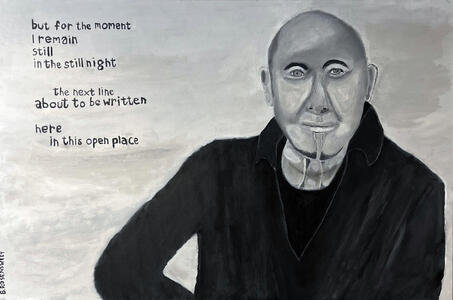 but for the moment
I remain
still
in the still night
the next line
about to be written
here
in this open place